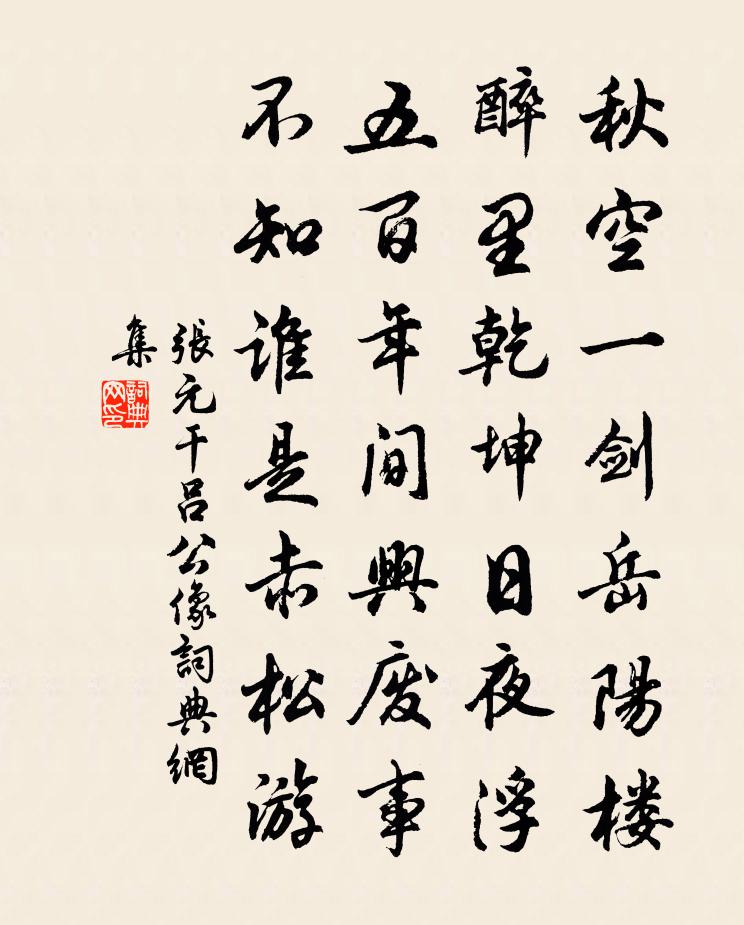 秋空一剑岳陽楼
醉里乾坤日夜浮
五百年間興废事
不知谁是赤松游
張元干吕公像詞典網
集
詞典
网印